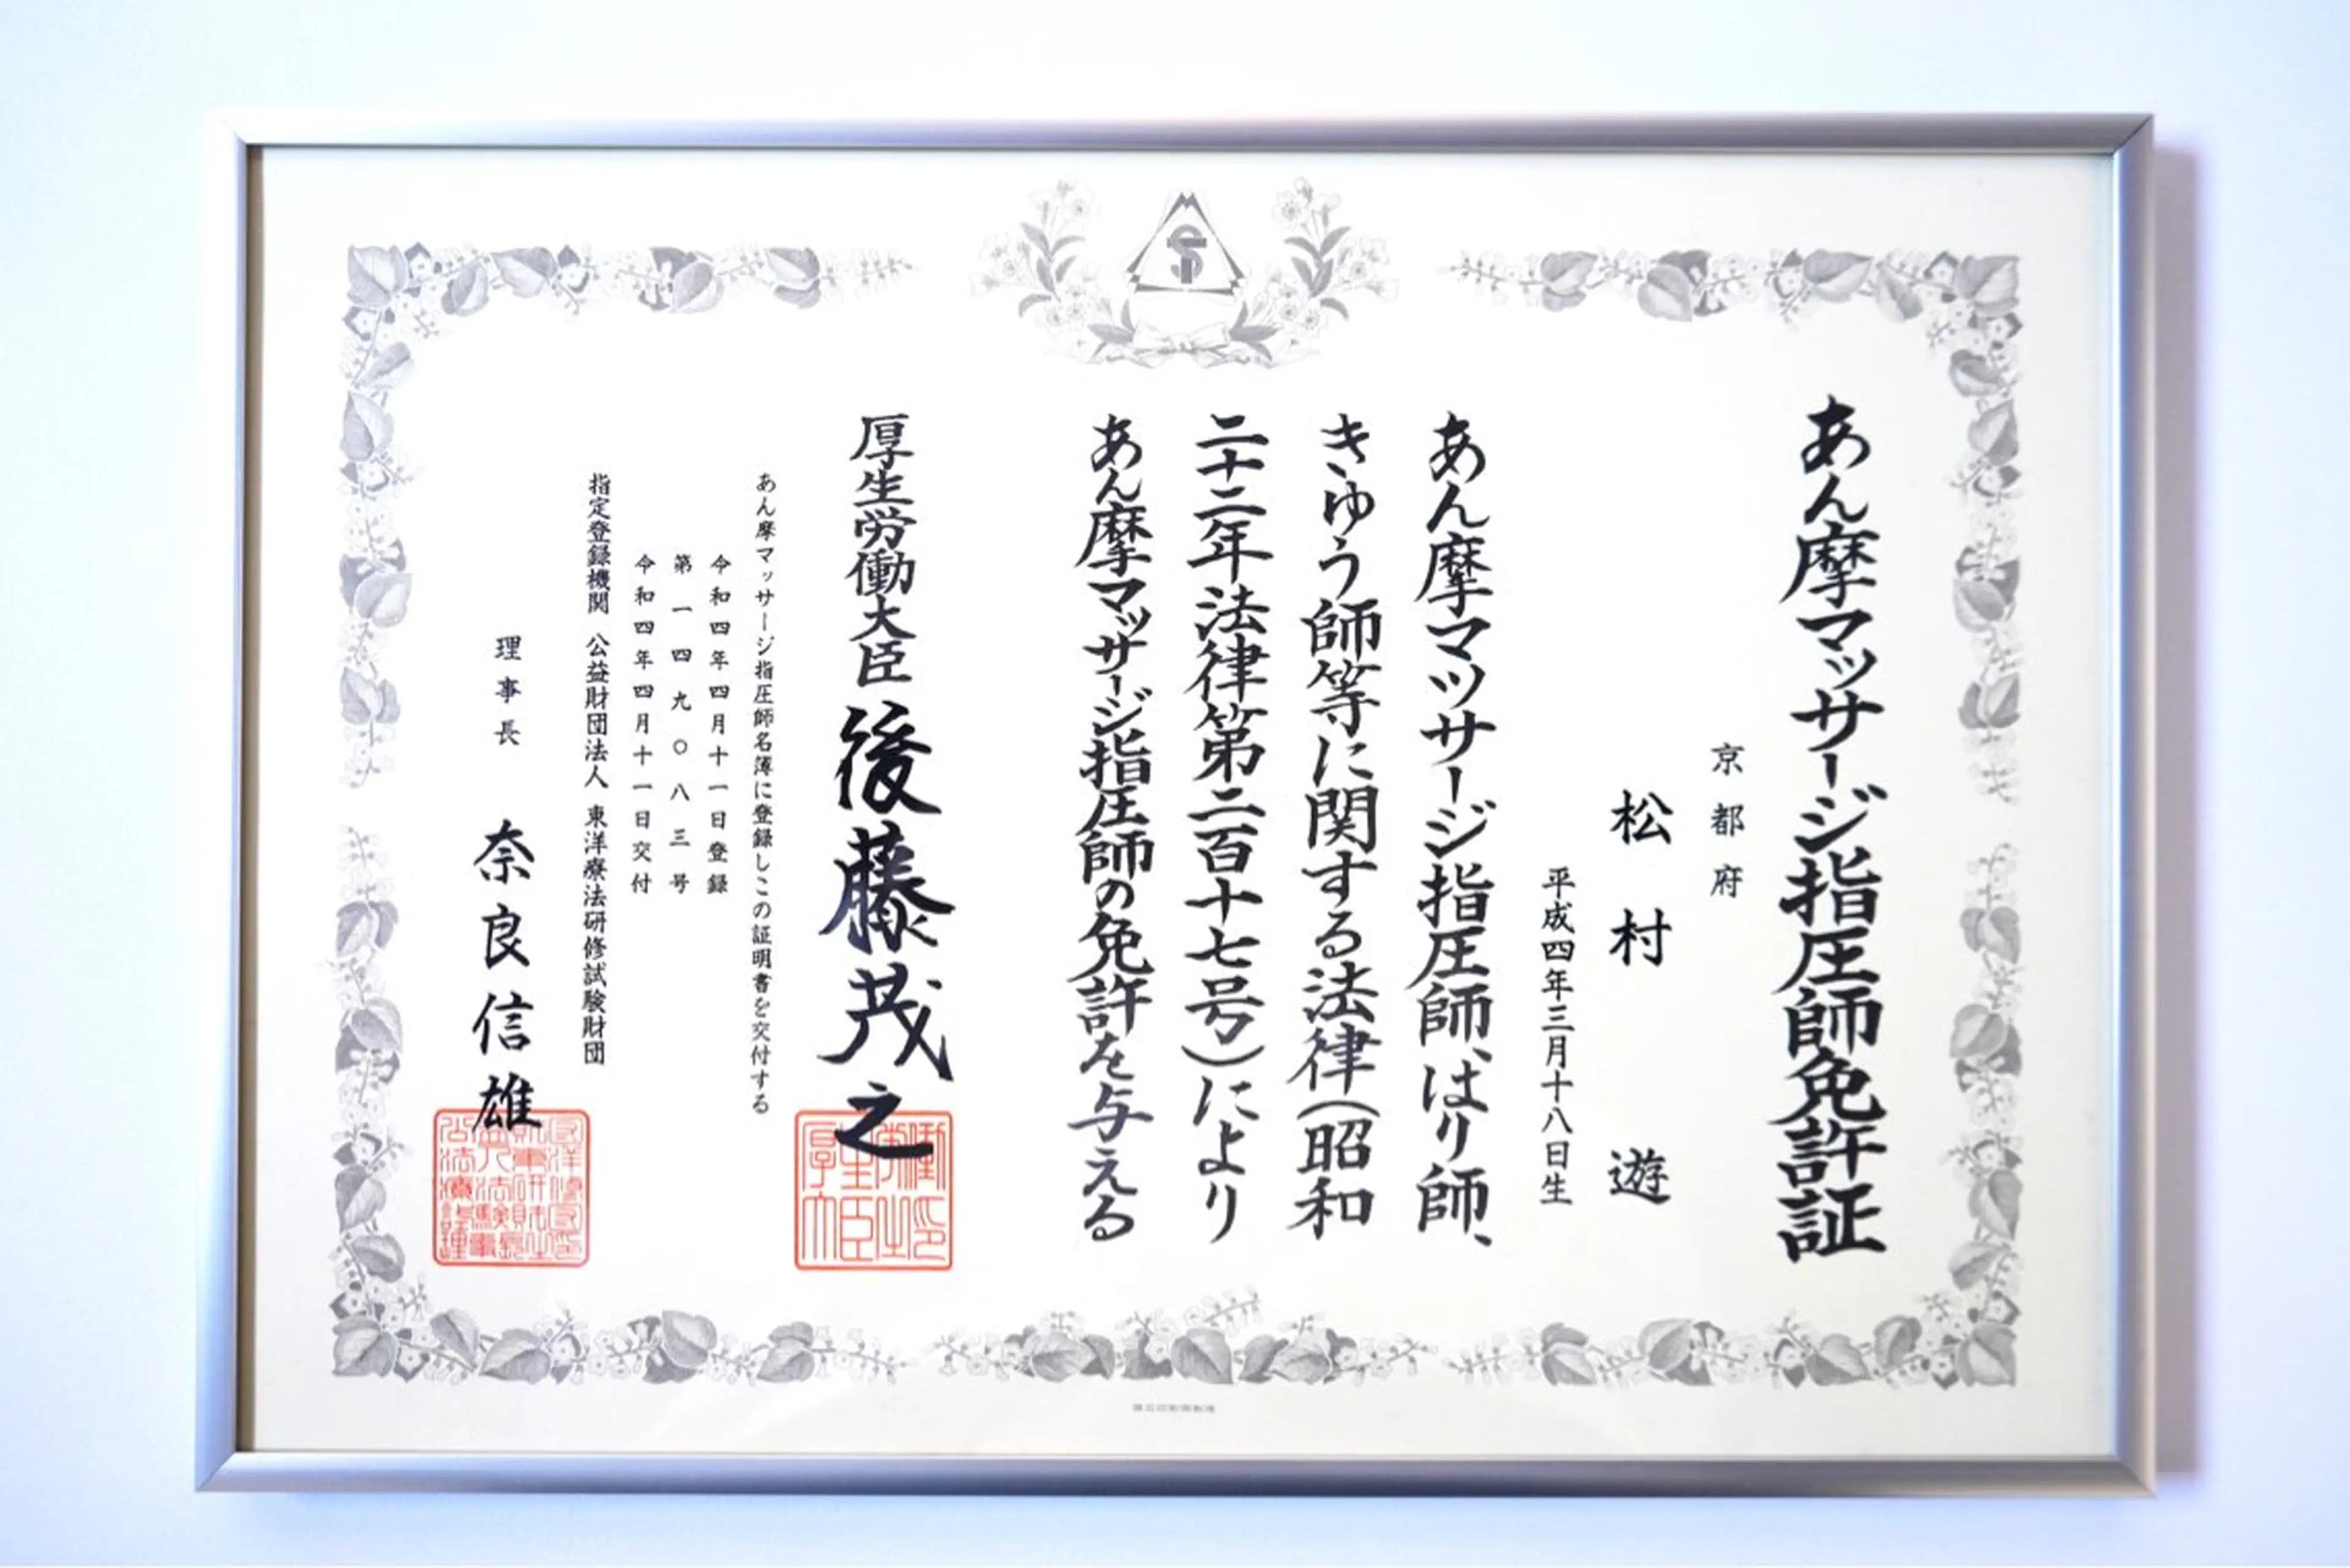 あん摩マッサージ指圧師免許証
京都府
松村 遊
平成四年三月十八日生
あん摩マッサージ指圧師、はり師、
きゆう師等に関する法律(昭和
二十二年法律第二百十七号)により
あん摩マッサージ指圧師の免許を与える
厚生労働大臣 後藤茂之
あん摩マッサージ指圧師名簿に登録しこの証明書を交付する
令和四年四月十一日登録
第一四九〇八三号
令和四年四月十一日交付
指定登録機関 公益財団法人 東洋療法研修試験財団
理事長 奈良信雄